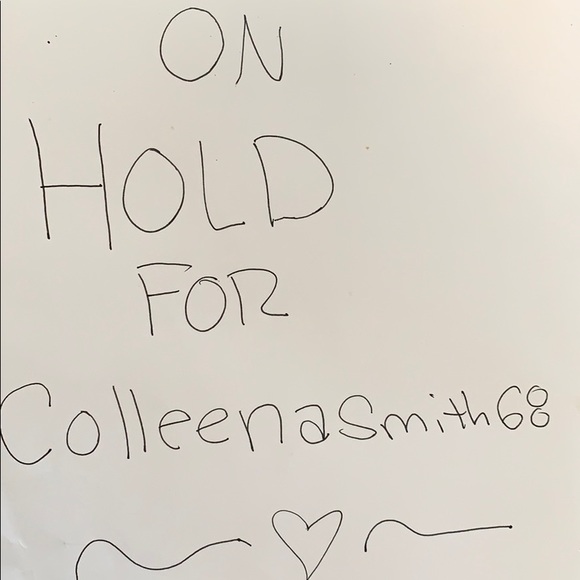 ON
HOLD
FOR
Colleenasmith68